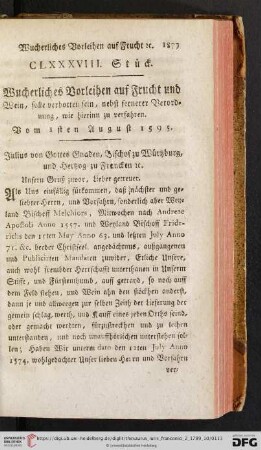 Wucherliches Vorleihen auf Frucht ꝛc. 1873
CLXXXVIII. Stück.
Wucherliches Vorleihen auf Frucht und
Wein, solle verbotten sein, nebst fernerer Verord-
nung, wie hierinn zu verfahren.
Vom 1sten August 1595.
Julius von Gottes Gnaden, Bischof zu Würzburg,
und Hertzog zu Francken ꝛc.
Unsern Gruß zuvor, Lieber getreuer.
Als Uns einfältig fürkommen, daß
liebter Herrn, und Vorfahrn, sonderlich aber Wey-
land Bischoff Melchiors, Mitwochen nach Andreae
Apostoli Anno 1557. und Weyland Bischoff Fride-
richs den 11ten May Anno 63. und letzten July Anno
71. ꝛc. beeder Christseel. angedachtnus, außgangenen
und Publicirten Mandaten zuwider, Etliche Unsere,
auch wohl frembder Herrschafft unterthanen in Unserm
Stifft, und Fürstenthumb, auf getraid, so noch auf
dem feld stehen, und Wein ahn den stöckhen anderst,
dann je und allwegen zur selben Zeith der lieferung der
gemein schlag, werth, und Kauff eines jeden Orths seind,
oder gemacht werdten, fürzustreckhen und zu leihen
unterstanden, und noch unauffhörlichen unterstehen sol-
len; Haben Wir unterm dato den 11ten July Anno
1574. wohlgedachter Unser lieben Herrn und Vorfahrn
ver/
DFG